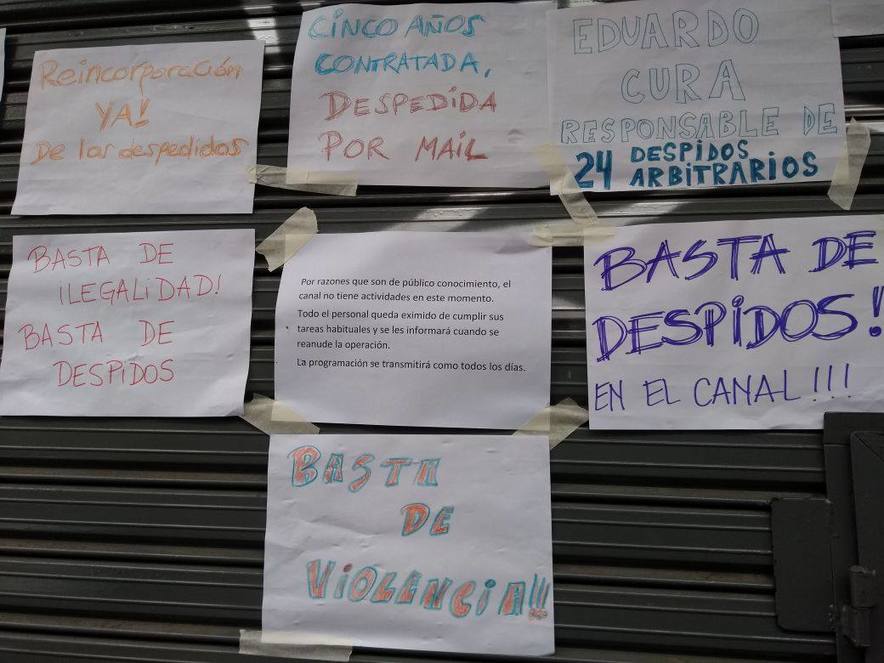 Reincorporación
YA!
De los despedidos
CINCO AÑOS
CONTRATADA,
DESPEDIDA
POR MAIL
EDUARDO
CURA
RESPONSABLE DE
24 DESPIDOS
ARBITRARIOS
BASTA DE
ILEGALIDAD!
BASTA DE
DESPIDOS
Por razones que son de público conocimiento, el
canal no tiene actividades en este momento.
Todo el personal queda eximido de cumplir sus
tareas habituales y se les informará cuando se
reanude la operación.
La programación se transmitirá como todos los días.
BASTA DE
DESPIDOS!
EN EL CANAL!!!
BASTA
DE
VIOLENCIA!!!